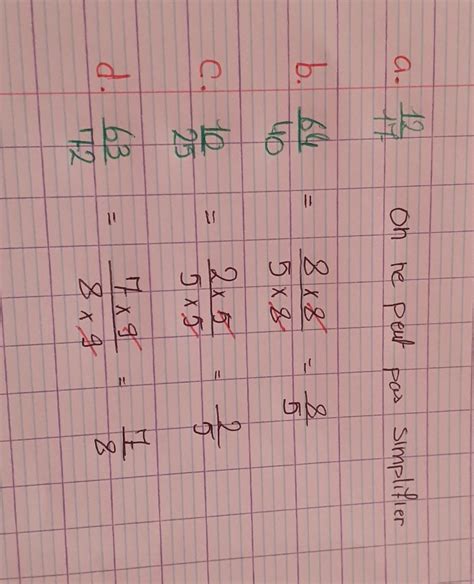 a. 12/17 On ne peut pas simplifier
b. 64/40 = 8 × 8/5 × 8 = 8/5
c. 10/25 = 2 × 5/5 × 5 = 2/5
d. 63/72 = 7 × 9/8 × 9 = 7/8